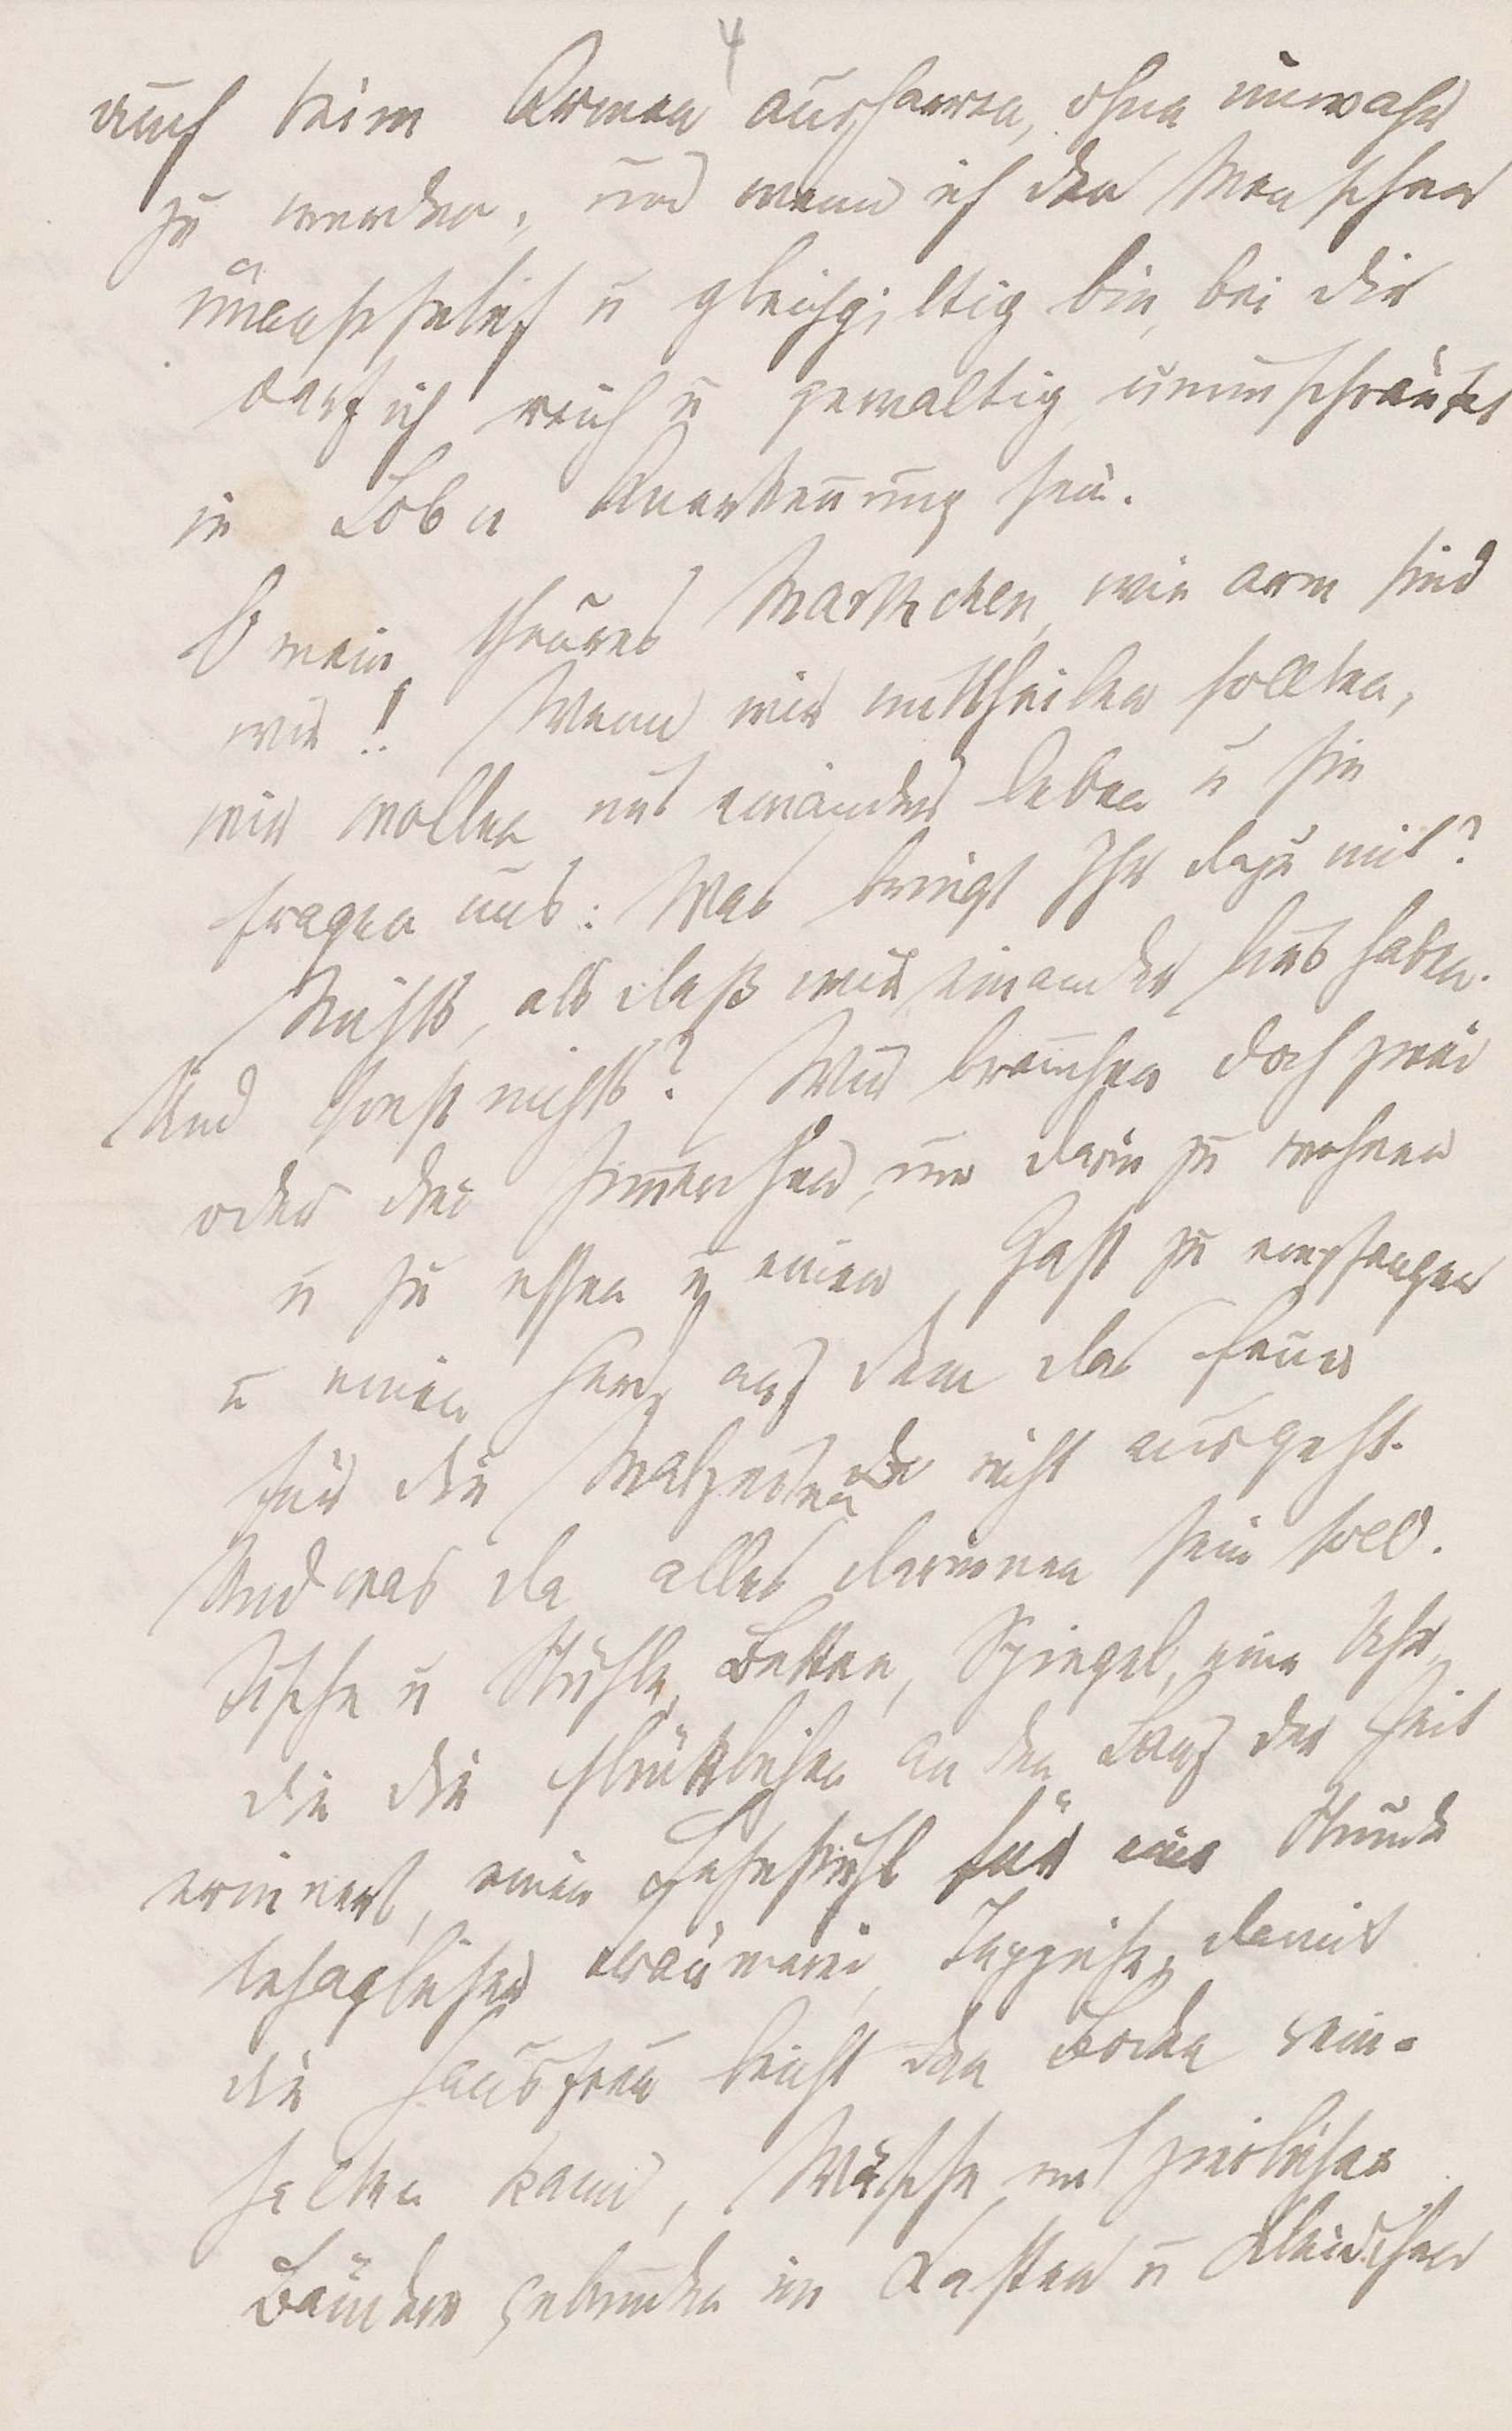 4
auch beim Armen ausharren, ohne unwahr
zu werden, und wenn ich den Menschen
unansehnlich u gleichgiltig bin, bei dir
darf ich reich u gewaltig, unumschränkt
in Lob u Anerkennung sein.
O mein theures Marthchen, wie arm sind
wir! Wenn wir mittheilen sollten,
wir wollen mit einander leben u sie
fragen uns: Was bringt Ihr dazu mit?
Nichts, als daß wir einander lieb haben.
Und sonst nichts? Wir brauchen doch zwei
oder drei Zimmerchen, um darin zu wohnen
u zu essen u einen Gast zu empfangen
u einen Herd, auf dem das Feuer
für die Malzeiten nicht ausgeht.
Und was da alles darinnen sein soll.
Tische u Stühle, Betten, Spiegel, eine Uhr,
die die Glücklichen an den Lauf der Zeit
erinnert, einen Lehnstuhl für eine Stunde
behaglicher Träumerei, Teppiche, damit
die Hausfrau leicht den Boden rein-
halten kann, Wäsche mit zierlichen
Bändern gebunden im Kasten u Kleidchen